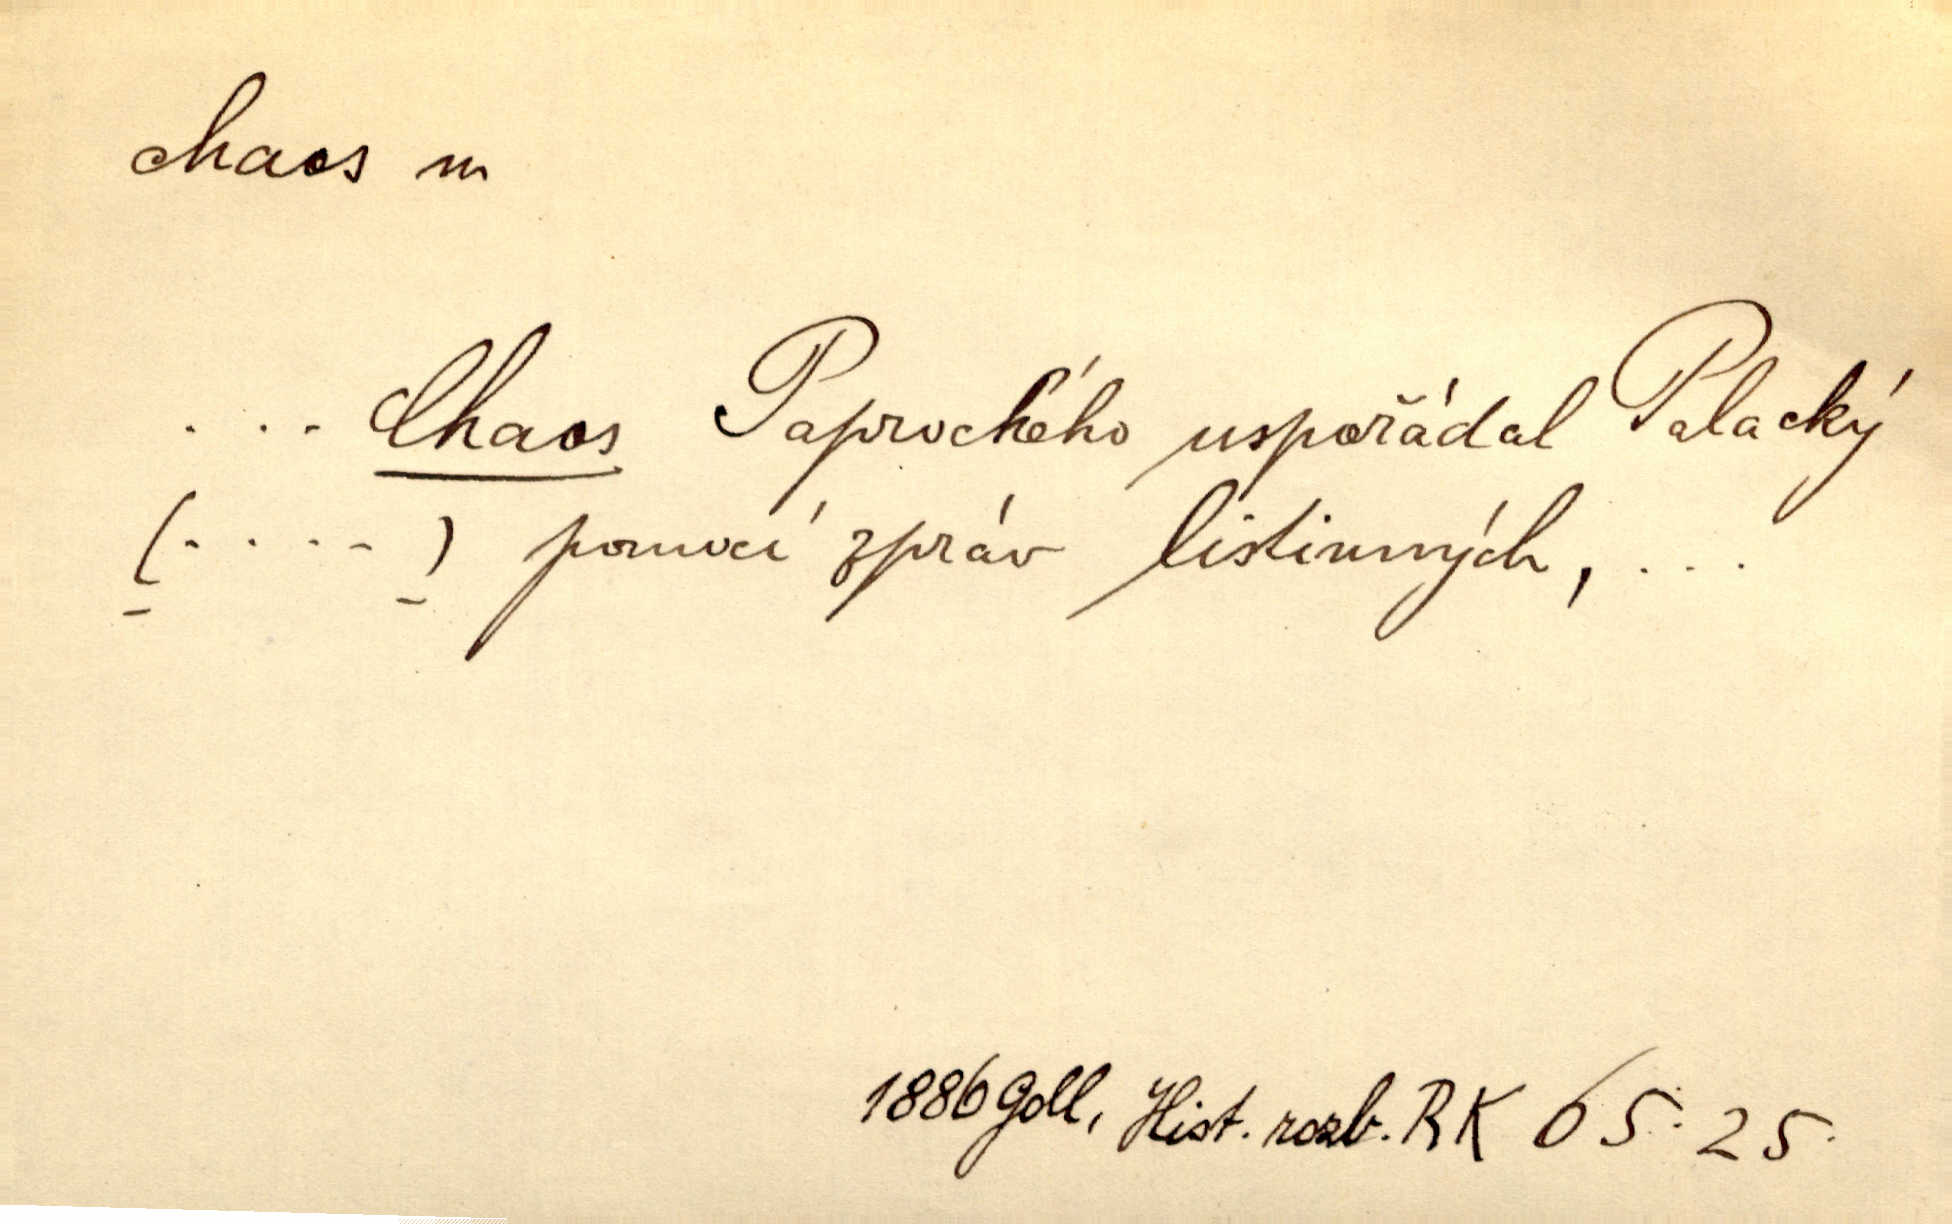 chaos m
... Chaos Paprockého uspořádal Palacký
(....) pomocí zpráv listinných, ...
1886 Goll, Hist. rozb. RK 65: 25.